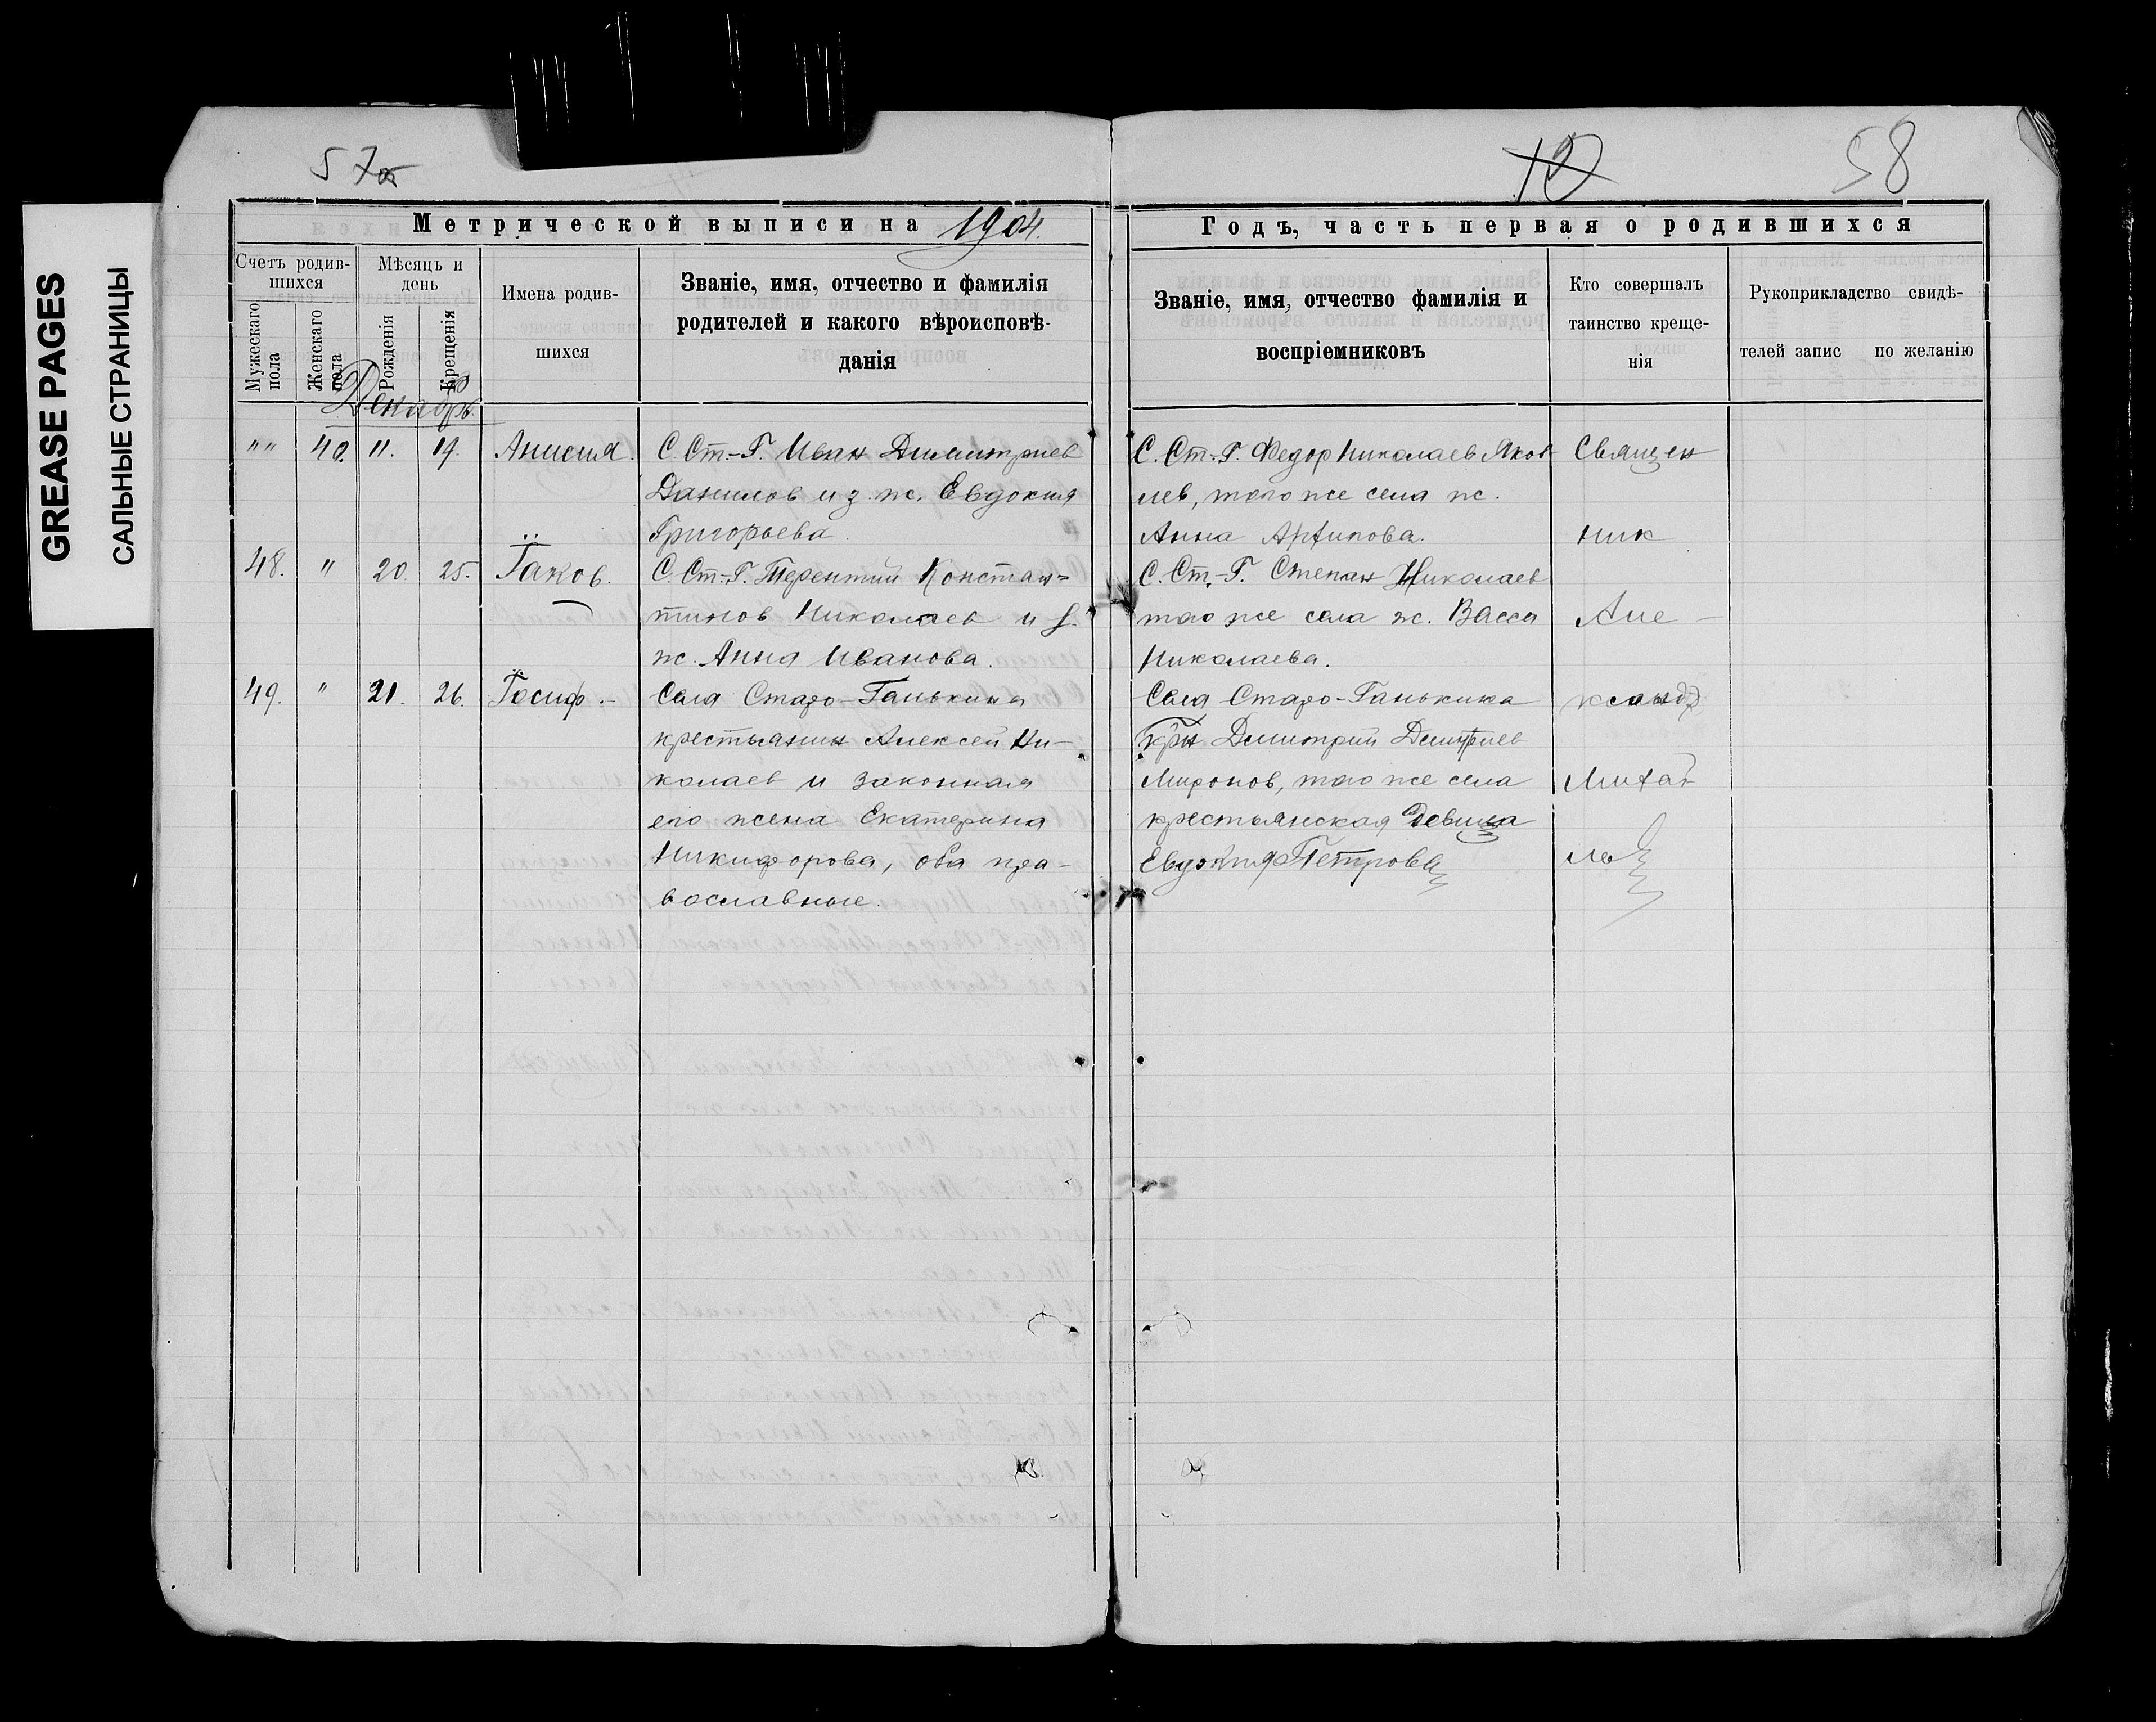 GREASE PAGES
САЛЬНЫЕ СТРАНИЦЫ
57об
58
Метрической выписи на 1904.
Годъ, часть первая о родившихся
Счетъ родив-
шихся
Мѣсяцъ и
день
Мужескаго
пола
Женскаго
пола
Рожденія
Крещенія
Имена родив-
шихся
Званіе, имя, отчество и фамилія
родителей и какого вѣроисповѣ-
данія
Званіе, имя, отчество фамилія и
воспріемниковъ
Кто совершалъ
таинство креще-
нія
Рукоприкладство свидѣ-
телей запис по желанію
Декабрь
"" 40. 11. 19. Анисия. С. Ст.-Г. Иван Димитриев
Данилов и з. ж. Евдокия
Григорьева.
48. " 20. 25. Іаков. С. Ст.-Г. Терентий Констан=
тинов Николаев и з.
ж. Анна Иванова.
49. " 21. 26. Іосиф.- Села Старо-Ганькина
крестьянин Алексей Ни-
колаев и законная
его жена Екатерина
Никифорова, оба пра-
вославные.
С. Ст.-Г. Федор Николаев Яков
лев, того же села ж.
Анна Архипова.
С. Ст.-Г. Степан Николаев
того же села ж. Васса
Николаева.
Села Старо-Ганькина
крн Димитрий Димитриев
Миронов, того же села
крестьянская девица
Евдокия Петрова
Священ
ник
Але-
ксандр
Михай